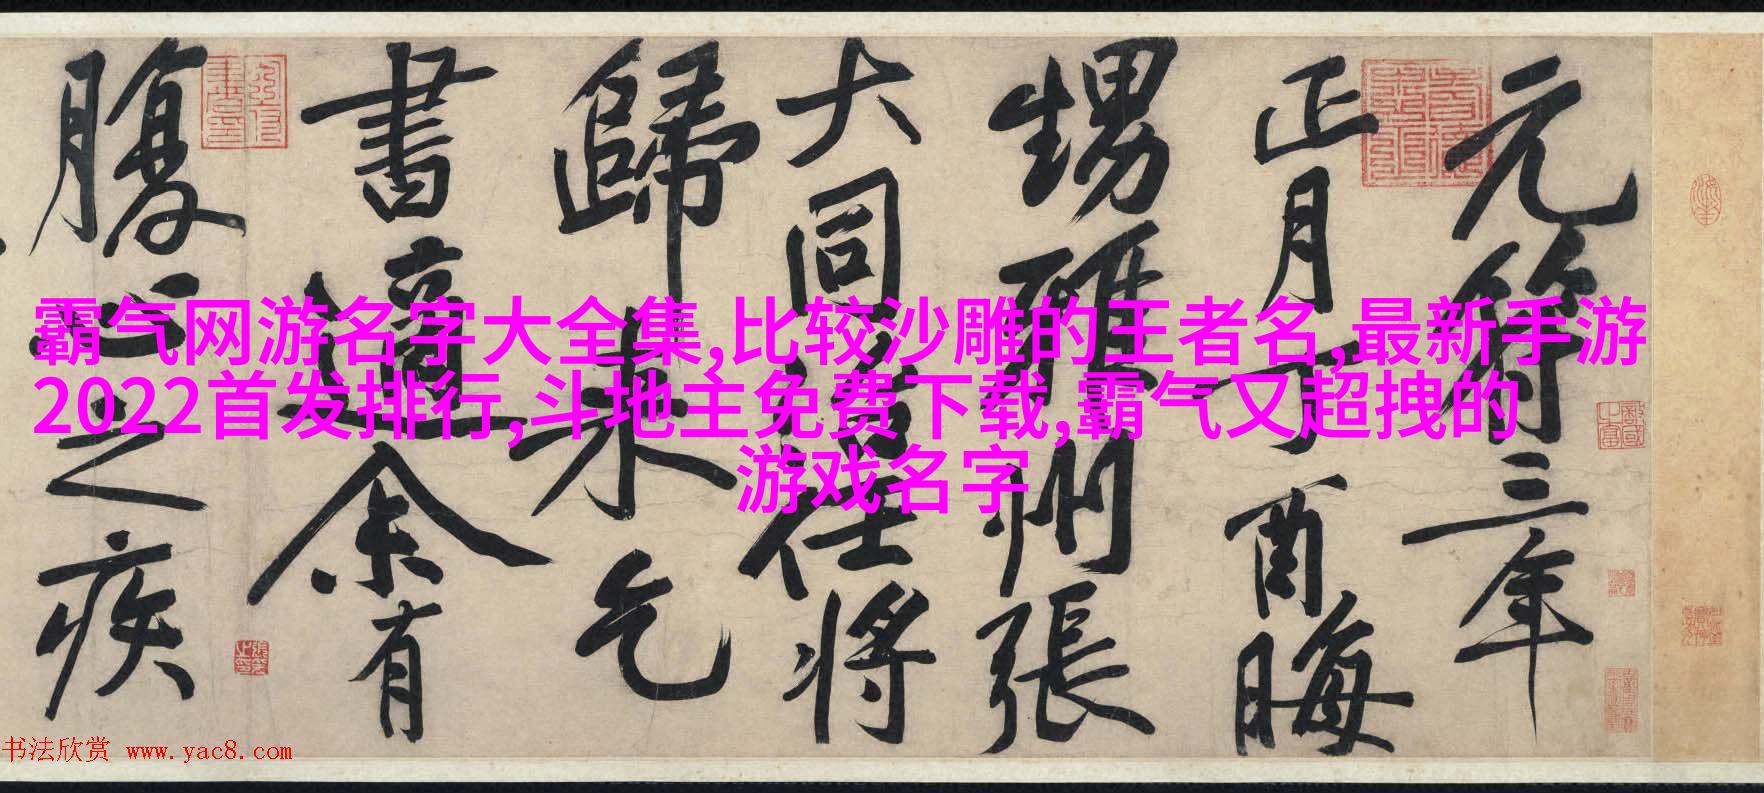 霸气网游名字大全集,比较沙雕的王者名,最新手游
2022首发排行,斗地主免费下载,霸气又超拽的
游戏名字
元符三年
正月丁酉晦
甥雅州張
大同治任將
歸來乞
書適余有
腹心之疾
书法欣赏 www.yac8.com